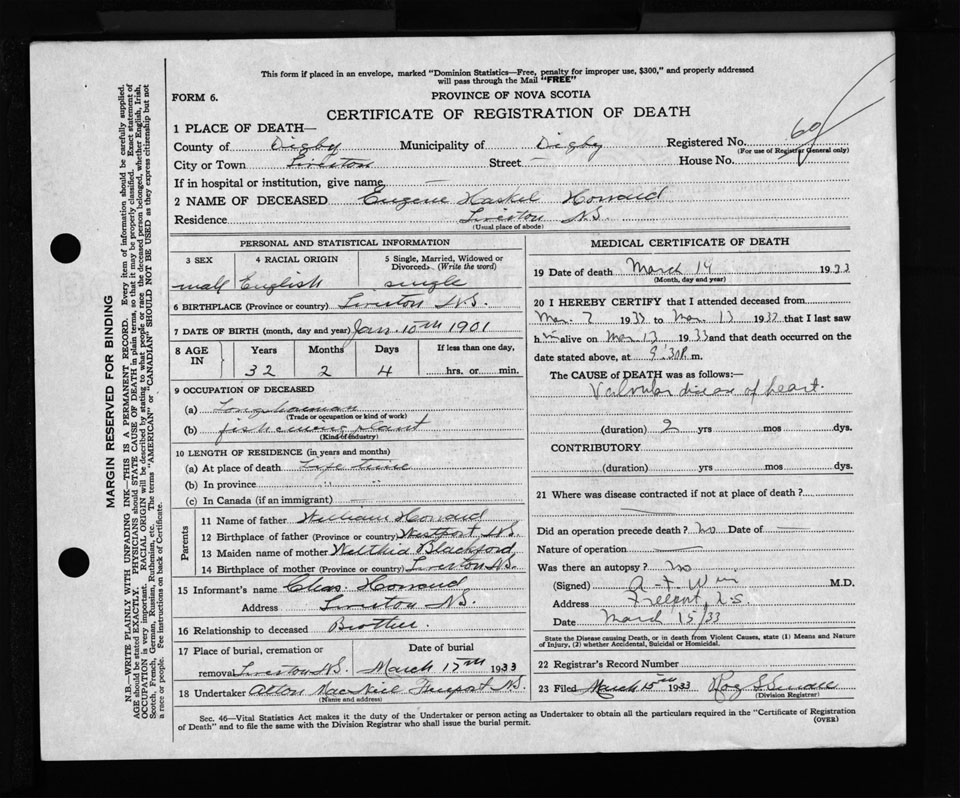 This form if placed in an envelope, marked "Dominion Statistics—Free, penalty for improper use, $300," and properly addressed
will pass through the Mail "FREE"
FORM 6.
PROVINCE OF NOVA SCOTIA
CERTIFICATE OF REGISTRATION OF DEATH
1 PLACE OF DEATH—
County of Digby Municipality of Digby Registered No. 69
(For use of Registrar General only)
City or Town Tiverton Street — House No.
If in hospital or institution, give name —
2 NAME OF DECEASED Eugene Haskel Howard
Residence Tiverton N.S.
(Usual place of abode)
PERSONAL AND STATISTICAL INFORMATION
3 SEX 4 RACIAL ORIGIN 5 Single, Married, Widowed or Divorced. (Write the word)
male English single
6 BIRTHPLACE (Province or country) Tiverton N.S.
7 DATE OF BIRTH (month, day and year) Jan. 10th 1901
8 AGE IN Years Months Days If less than one day,
32 2 4 hrs. or min.
9 OCCUPATION OF DECEASED
(a) Longshoreman
(Trade or occupation or kind of work)
(b) plant
(Kind of industry)
10 LENGTH OF RESIDENCE (in years and months)
(a) At place of death Life time
(b) In province " "
(c) In Canada (if an immigrant) —
Parents
11 Name of father William Howard
12 Birthplace of father (Province or country) Westport N.S.
13 Maiden name of mother Blackford
14 Birthplace of mother (Province or country) Tiverton N.S.
15 Informant's name Chas. Howard
Address Tiverton N.S.
16 Relationship to deceased Brother
17 Place of burial, cremation or removal Tiverton N.S. Date of burial March 17th 1933
18 Undertaker Alton MacNeil Freeport N.S.
(Name and address)
MEDICAL CERTIFICATE OF DEATH
19 Date of death March 14 1933
(Month, day and year)
20 I HEREBY CERTIFY that I attended deceased from
Mar. 7 1933 to Mar. 13 1933 that I last saw
him alive on Mar 13 1933 and that death occurred on the
date stated above, at 9:30 P. m.
The CAUSE of DEATH was as follows:—
Valvular disease of heart.
(duration) 2 yrs mos dys.
CONTRIBUTORY
(duration) yrs mos dys.
21 Where was disease contracted if not at place of death?
—
Did an operation precede death? no Date of —
Nature of operation —
Was there an autopsy? no
(Signed) A. F. M.D.
Address Freeport, N.S.
Date March 15/33
State the Disease causing Death, or in death from Violent Causes, state (1) Means and Nature
of Injury, (2) whether Accidental, Suicidal or Homicidal.
22 Registrar's Record Number
23 Filed March 15th 1933
(Division Registrar)
Sec. 46—Vital Statistics Act makes it the duty of the Undertaker or person acting as Undertaker to obtain all the particulars required in the "Certificate of Registration
of Death" and to file the same with the Division Registrar who shall issue the burial permit.
(OVER)
MARGIN RESERVED FOR BINDING
N.B.—WRITE PLAINLY WITH UNFADING INK—THIS IS A PERMANENT RECORD. Every item of information should be carefully supplied.
AGE should be stated EXACTLY. PHYSICIANS should STATE CAUSE OF DEATH in plain terms, so that it may be properly classified. Exact statement of
OCCUPATION is very important. RACIAL ORIGIN will be described by stating to what people or race the deceased person belonged, whether English, Irish,
Scotch, French, German, Russian, Ruthenian, etc. The terms "AMERICAN" or "CANADIAN" SHOULD NOT BE USED as they express citizenship but not
a race or people. See instructions on back of Certificate.